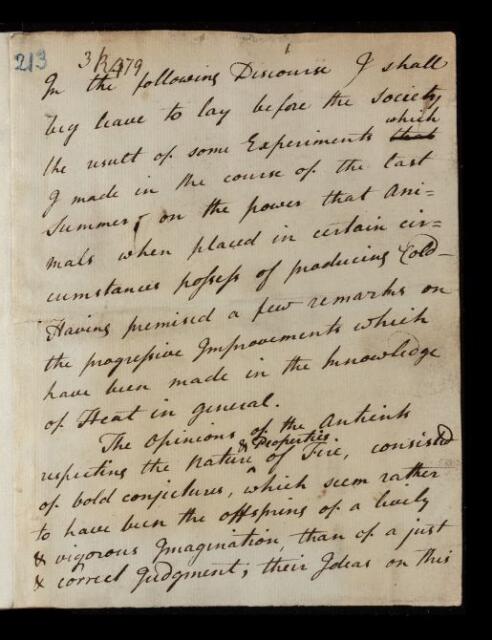 213
In the following Discourse I shall
beg leave to lay before the Society
the result of some Experiments which that
I made in the course of the last
Summer, on the power that Ani=
mals when placed in certain cir=
cumstances possess of producing Cold-
Having premised a few remarks on
the progressive Improvements which
have been made in the knowledge
of Heat in general.
The Opinions of the Antients
respecting the Nature & Properties of Fire, consisted
of bold conjectures, which seem rather
to have been the offspring of a lively
& vigorous Imagination, than of a just
& correct Judgment; their Ideas on this